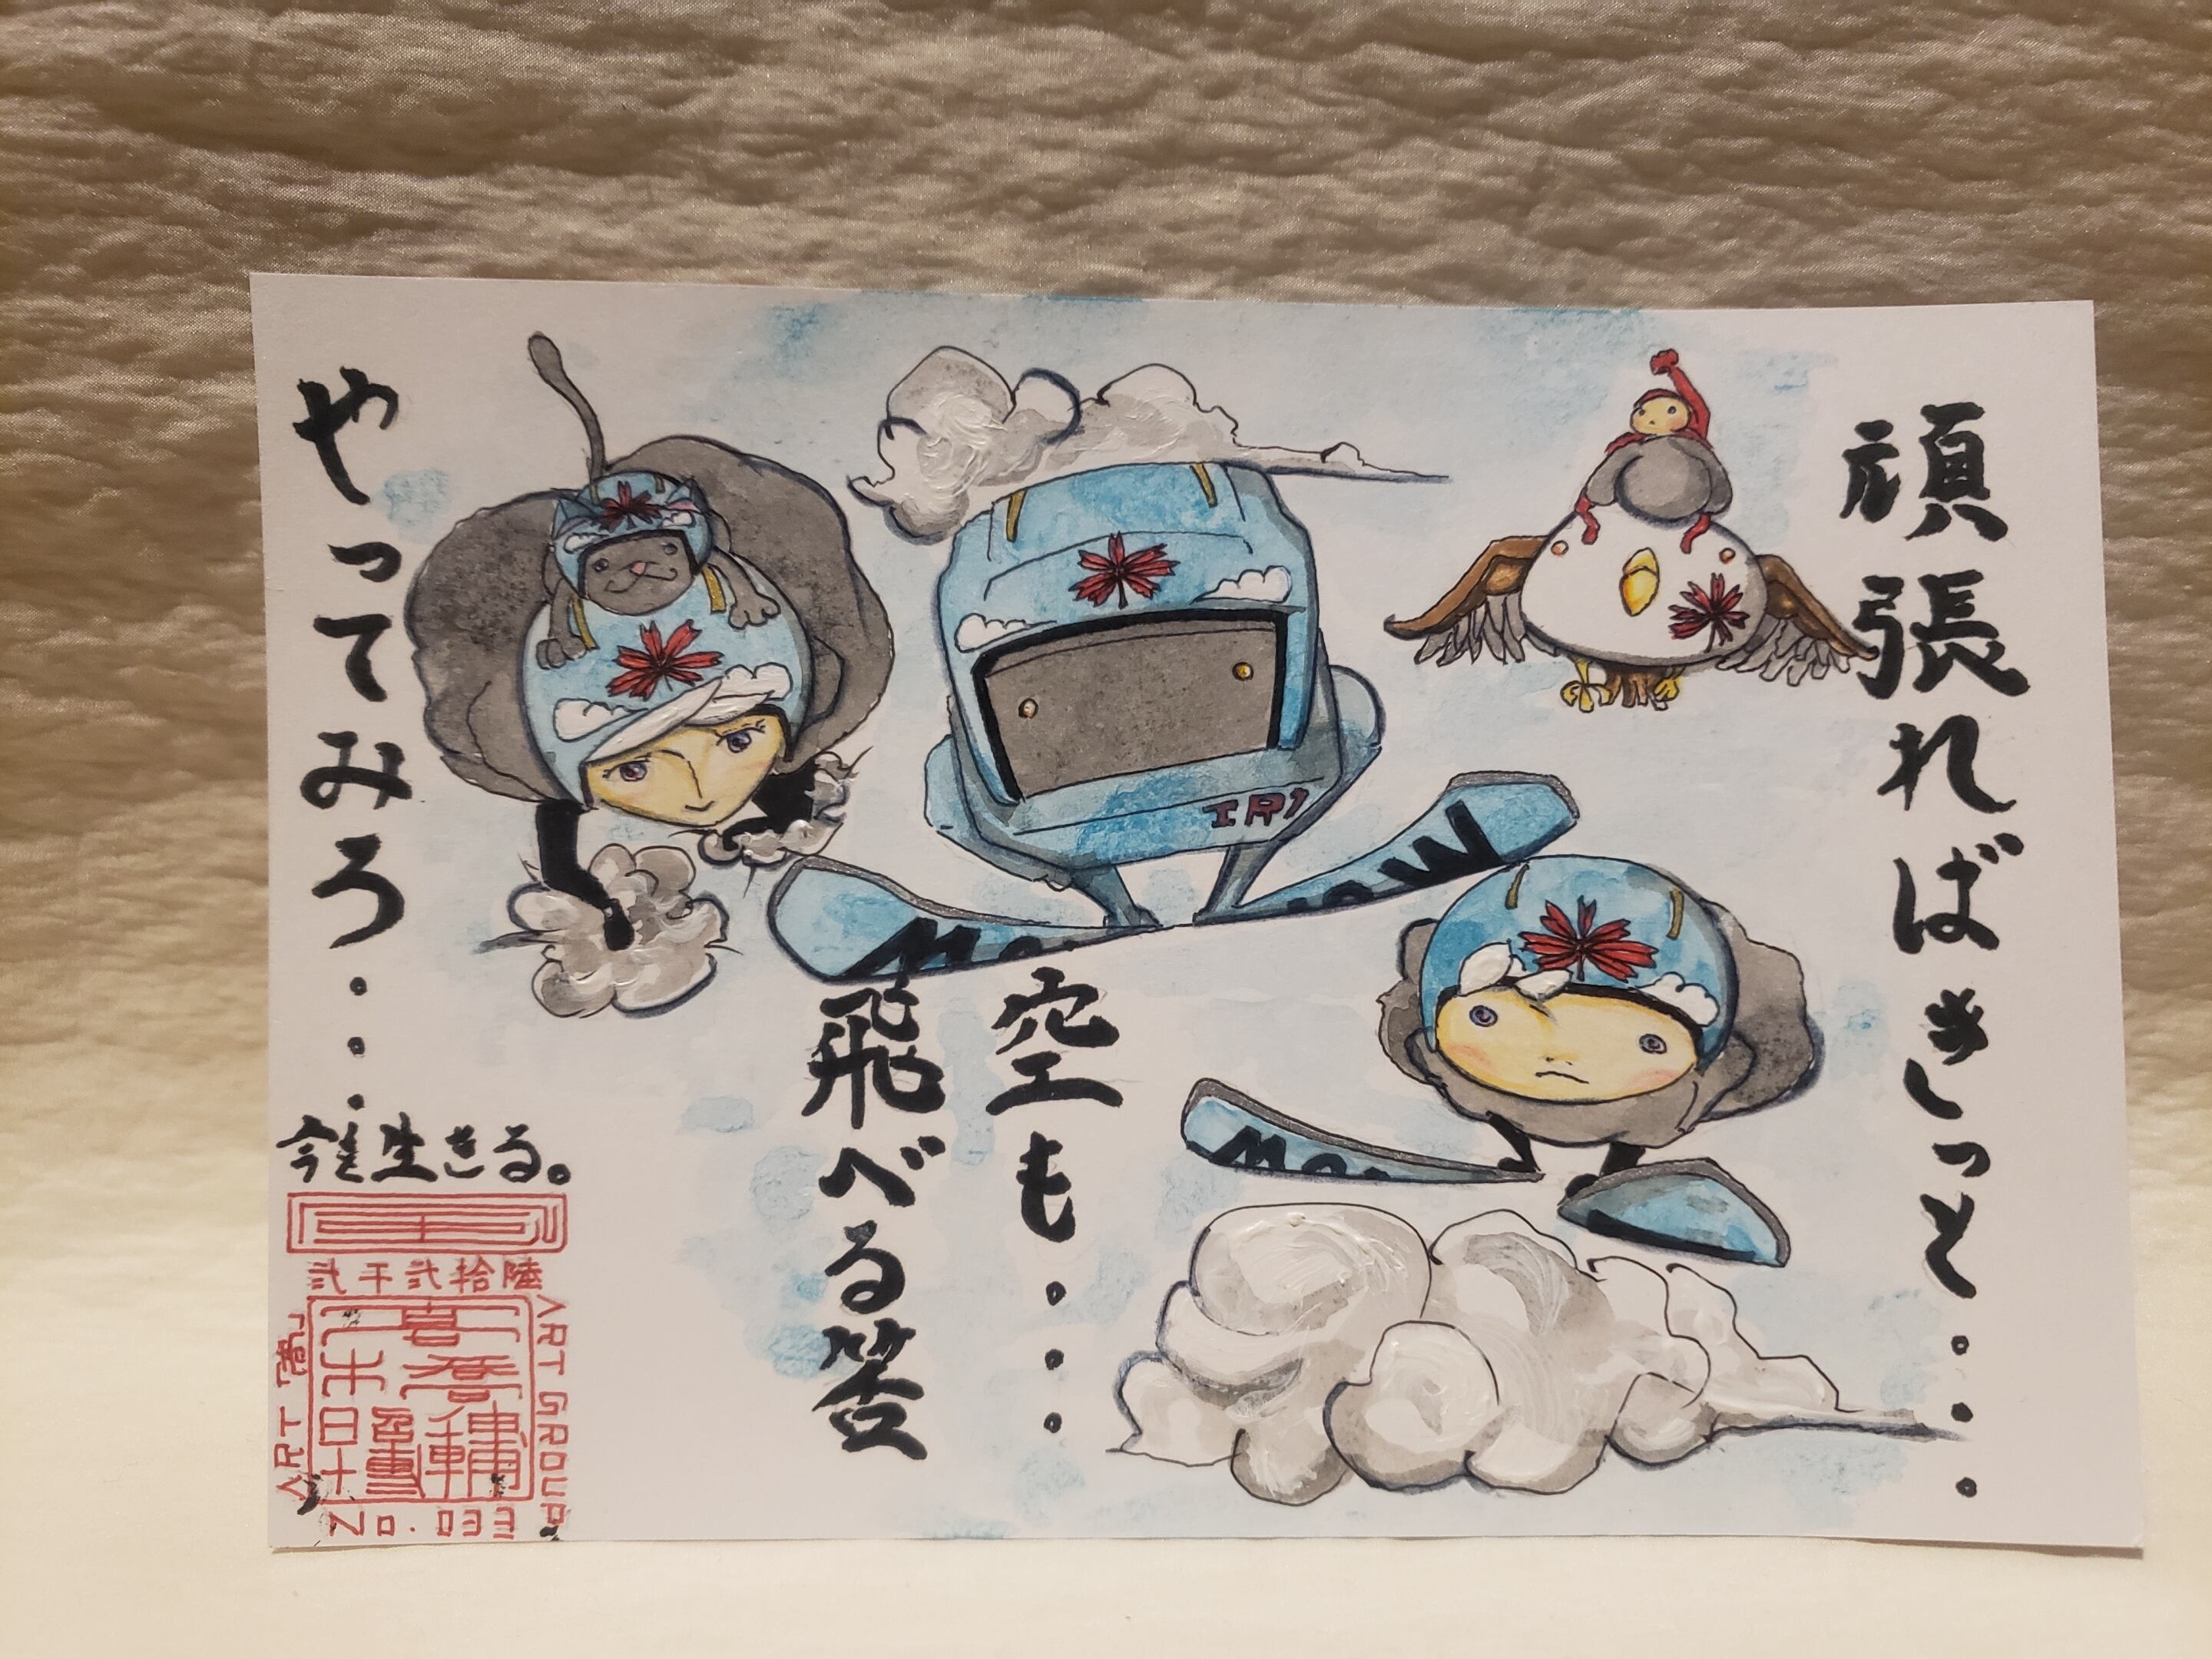 頑張ればきっと....
空も...
飛べる筈
やってみろ...
今を生きる。
弐千弐拾陸
ART GROUP
No.033
IRI